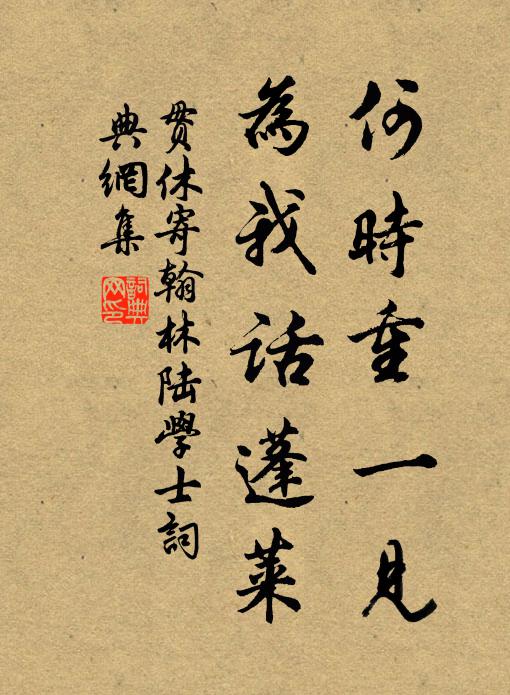 何時重一見
為我話蓬萊
貫休寄翰林陆學士詞
典網集
詞典
网印